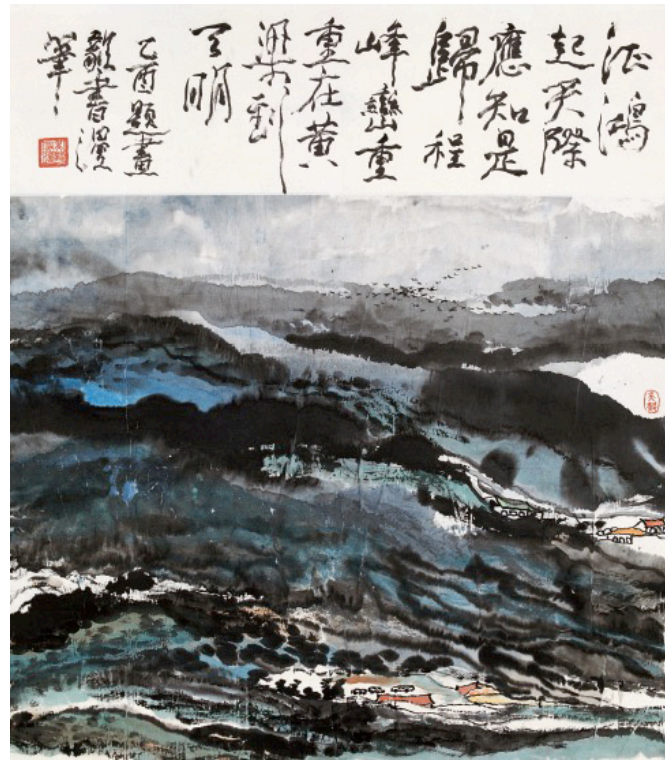 鴻
起天際
應知是
歸程
峰巒重
重在黃
粱到
天明
乙酉題畫
書漫
筆